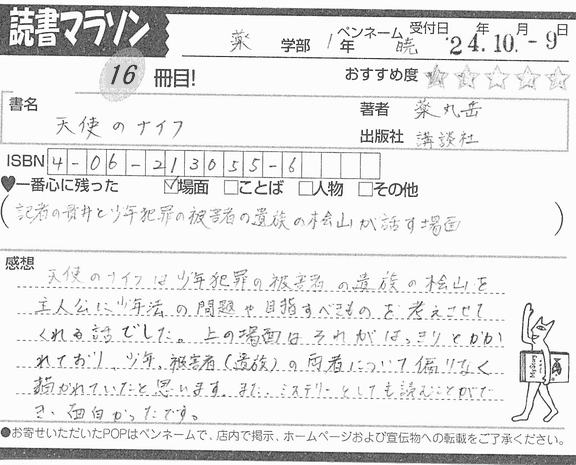 読書マラソン
薬 学部 1年 ペンネーム 暁 受付日 '24.10.-9 年 月 日
16 冊目!
おすすめ度 ☆☆☆☆☆
書名 天使のナイフ
著者 薬丸岳
出版社 講談社
ISBN 4-06-213055-6
♥一番心に残った ☑場面 □ことば □人物 □その他
(記者の貫井と少年犯罪の被害者の遺族の桧山が話す場面)
感想
天使のナイフは少年犯罪の被害者の遺族の桧山を
主人公に少年法の問題や目指すべきものを考えさせて
くれる話でした。上の場面はそれがはっきりとかか
れており、少年、被害者(遺族)の両者について偏りなく
描かれていたと思います。また、ミステリーとしても読むことがで
き、面白かったです。
●お寄せいただいたPOPはペンネームで、店内で掲示、ホームページおよび宣伝物への転載をご了承ください。